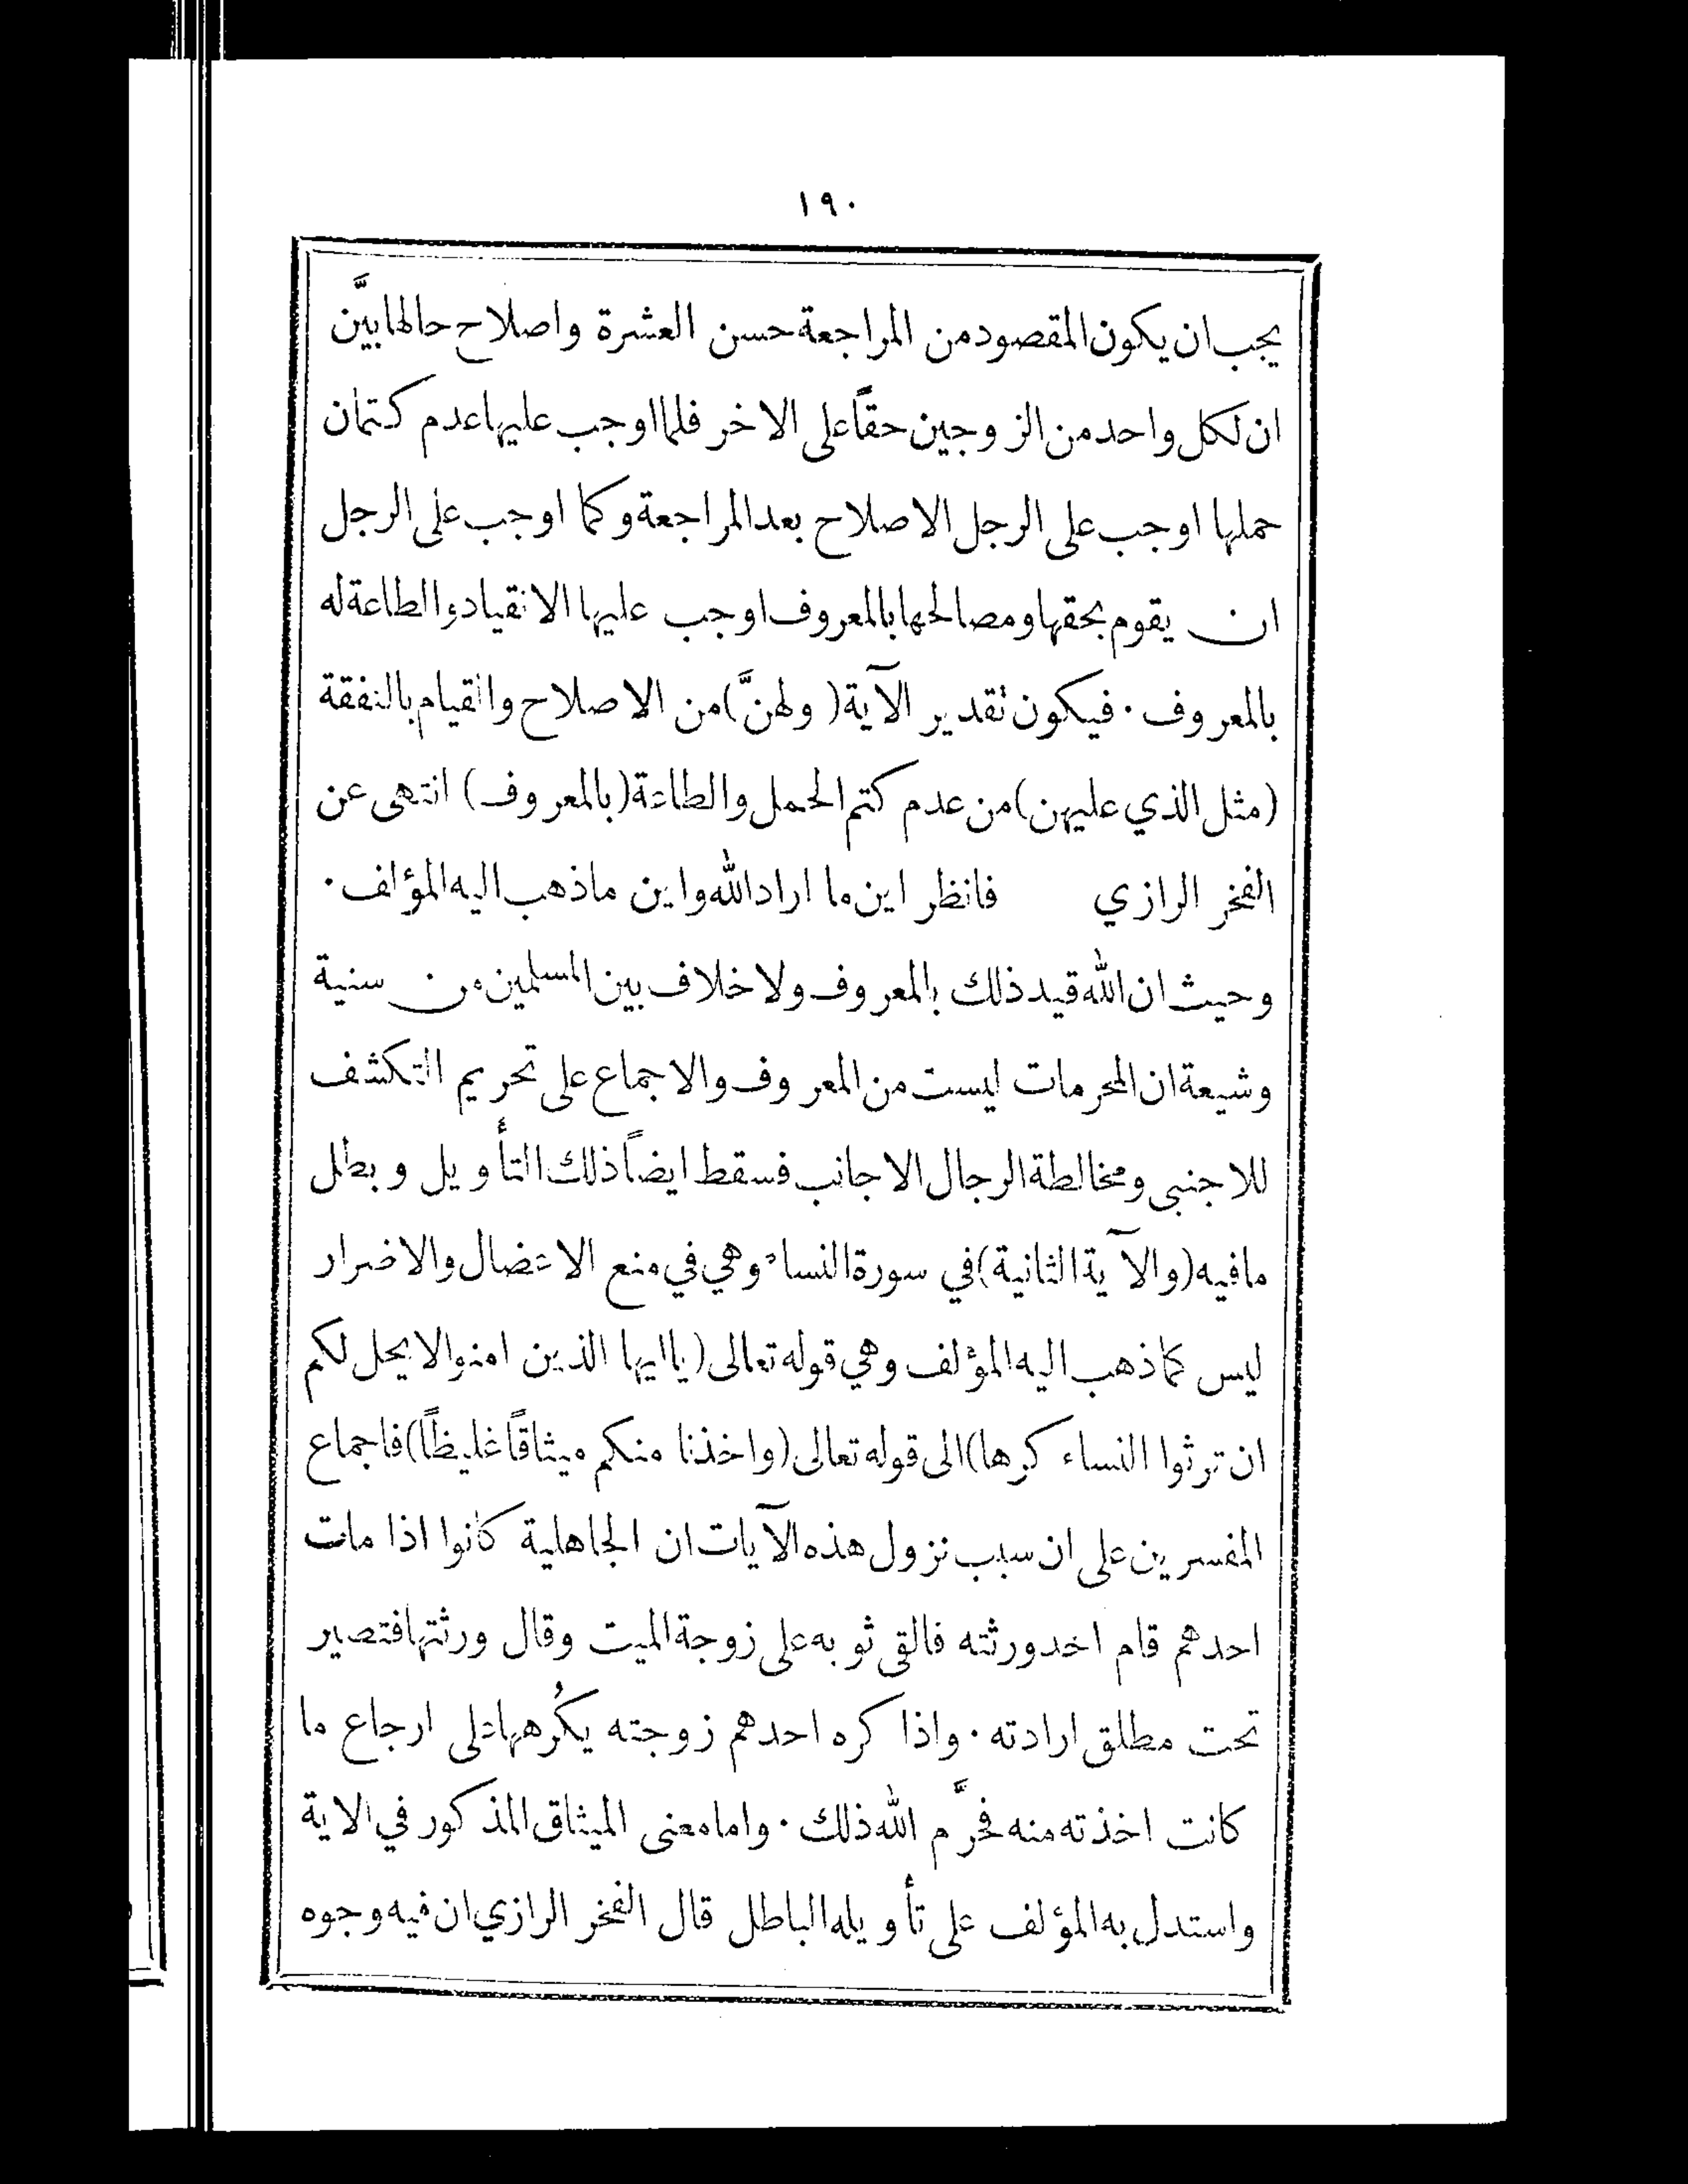 ١٩٠
يجب ان يكون المقصود من المراجعة حسن العشرة واصلاح حالها بيَّن
ان لكل واحد من الزوجين حقاً على الاخر فلما اوجب عليها عدم كتمان
حملها اوجب على الرجل الاصلاح بعد المراجعة وكما اوجب على الرجل
ان يقوم بحقها ومصالحها بالمعروف اوجب عليها الانقياد والطاعة له
بالمعروف . فيكون تقدير الآية ( ولهنَّ ) من الاصلاح والقيام بالنفقة
( مثل الذي عليهن ) من عدم كتم الحمل والطاعة ( بالمعروف ) انتهى عن
الفخر الرازي فانظر اين ما اراد الله واين ما ذهب اليه المؤلف .
وحيث ان الله قيد ذلك بالمعروف ولا خلاف بين المسلمين من سنية
وشيعة ان المحرمات ليست من المعروف والاجماع على تحريم التكشف
للاجنبي ومخالطة الرجال الاجانب فسقط ايضاً ذلك التأويل وبطل
ما فيه ( والآية الثانية ) في سورة النساء وهي في منع الاعضال والاضرار
ليس كما ذهب اليه المؤلف وهي قوله تعالى ( يا ايها الذين امنوا لا يحل لكم
ان ترثوا النساء كرها ) الى قوله تعالى ( واخذنا منكم ميثاقاً غليظاً ) فاجماع
المفسرين على ان سبب نزول هذه الآيات ان الجاهلية كانوا اذا مات
احدهم قام احد ورثته فالقى ثوبه على زوجة الميت وقال ورثتها فتصير
تحت مطلق ارادته . واذا كره احدهم زوجته يكُرهها على ارجاع ما
كانت اخذته منه فحرَّم الله ذلك . واما معنى الميثاق المذكور في الاية
واستدل به المؤلف على تأويله الباطل قال الفخر الرازي ان فيه وجوه